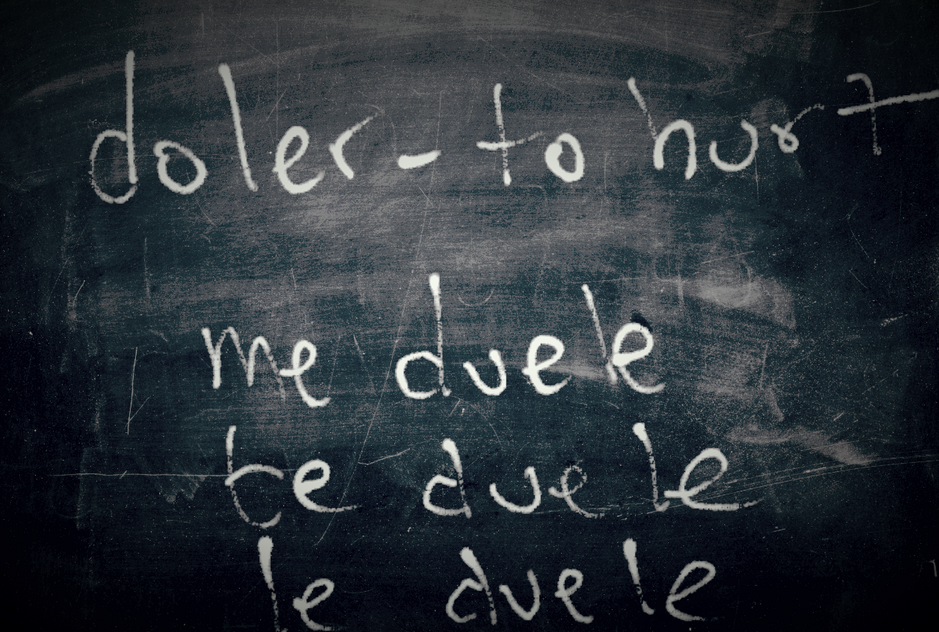 doler - to hurt
me duele
te duele
le duele